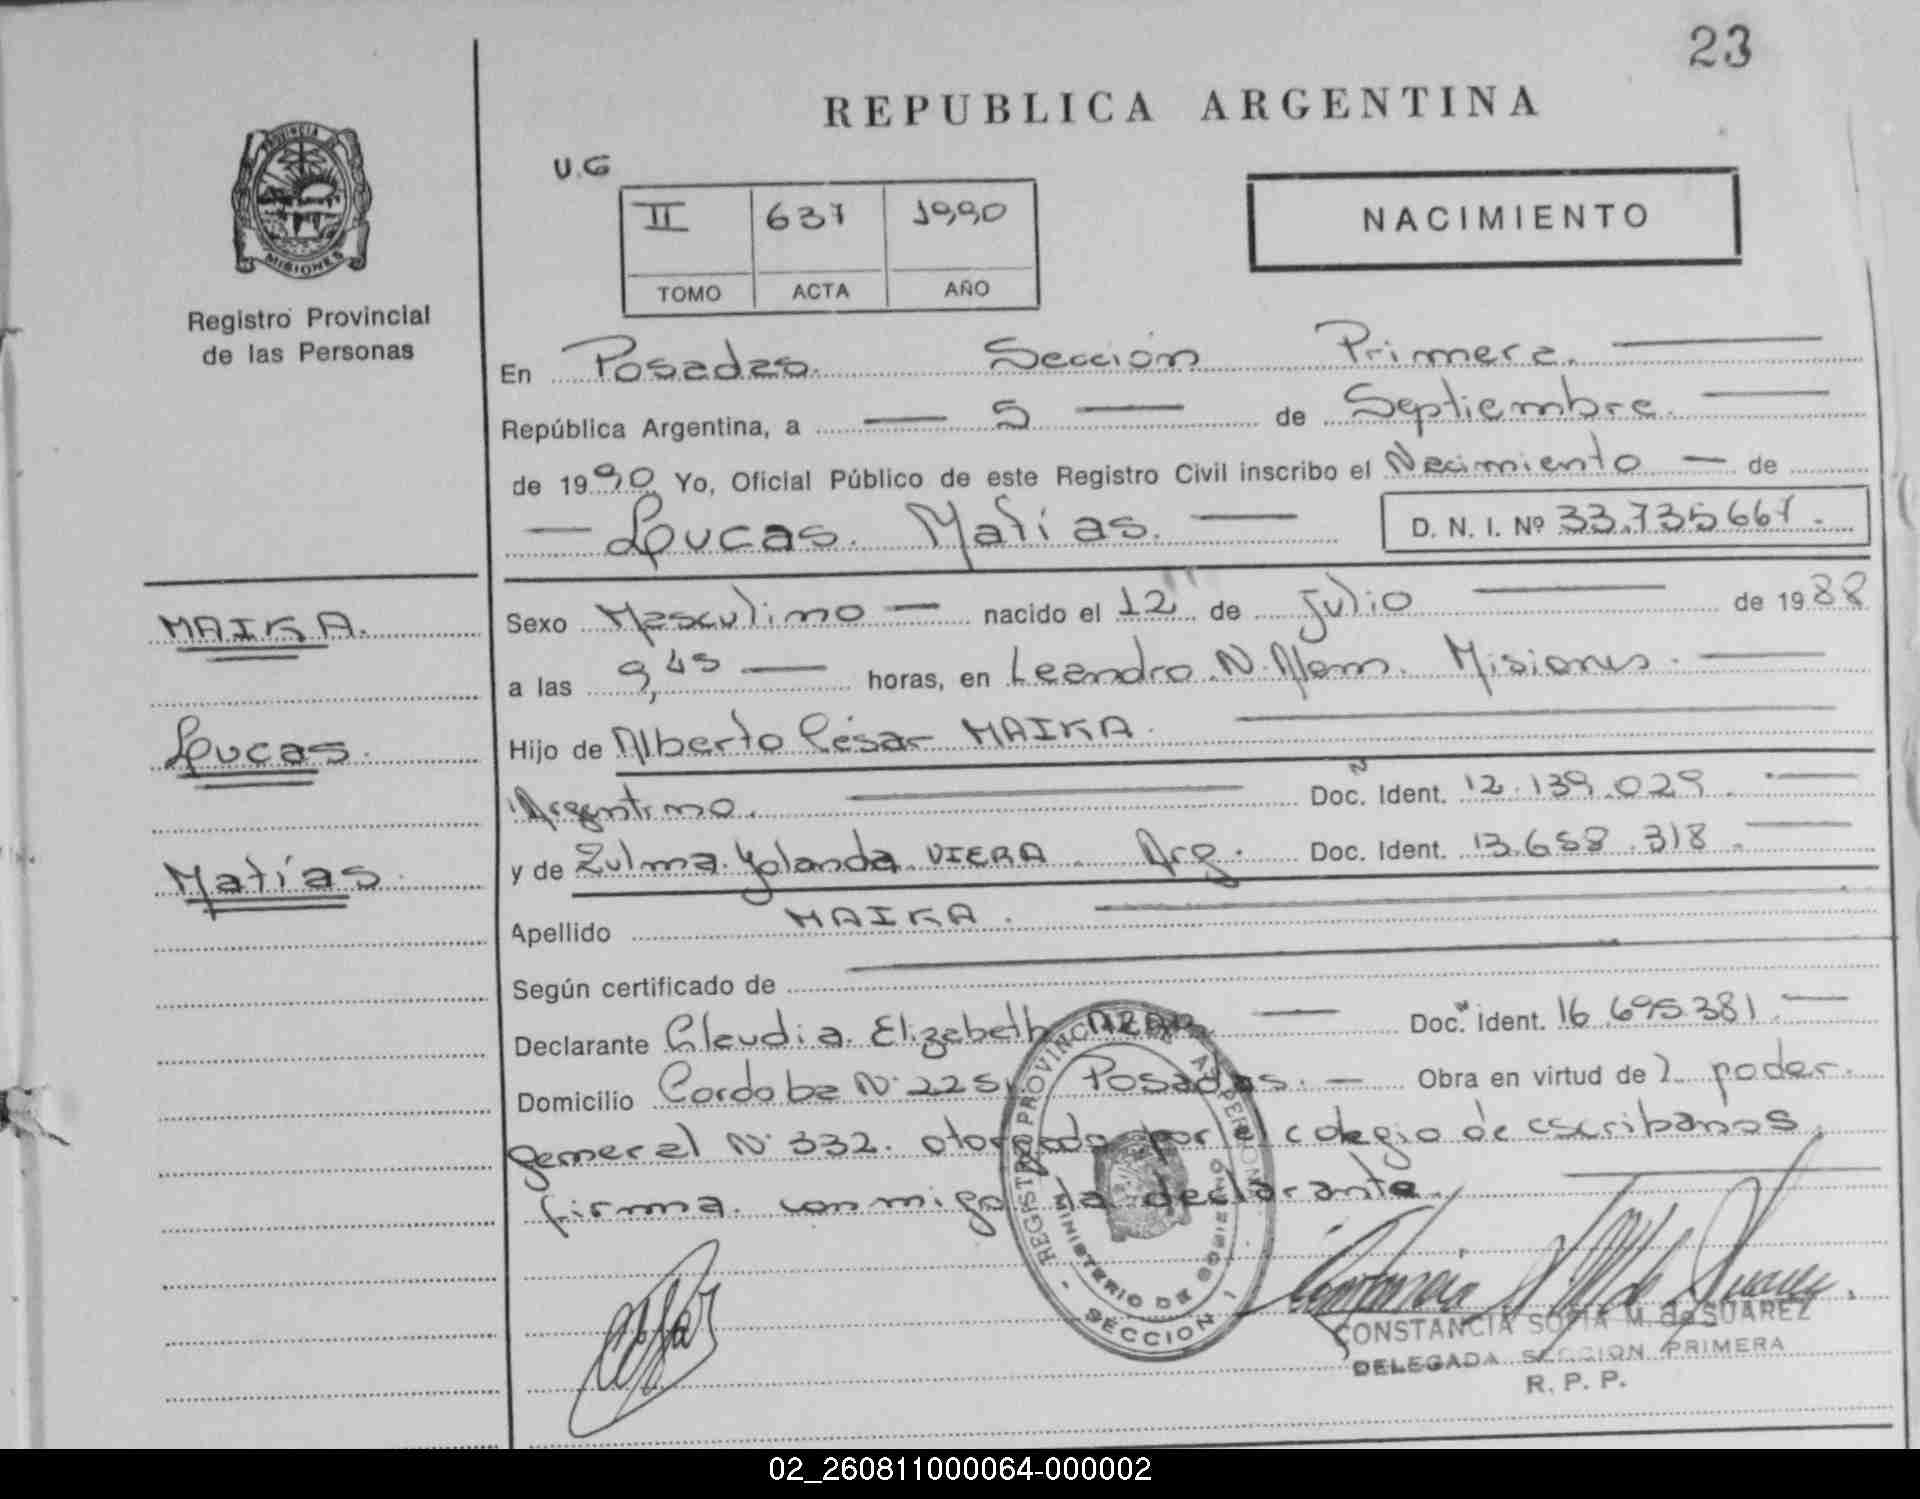 23
REPUBLICA ARGENTINA
PROVINCIA DE
MISIONES
U.G
II 637 1990
TOMO ACTA AÑO
NACIMIENTO
Registro Provincial
de las Personas
En Posadas. Sección Primera.
República Argentina, a — 5 — de Septiembre. —
de 1990 Yo, Oficial Público de este Registro Civil inscribo el Nacimiento — de
— Lucas. Matías. — D. N. I. Nº 33.735667.
MAIKA.
Lucas.
Matías.
Sexo Masculino — nacido el 12 de Julio — de 1988
a las 9,45 — horas, en Leandro. N. Alem. Misiones. —
Hijo de Alberto César MAIKA.
Argentino. — Doc. Ident. 12.139.029. —
y de Zulma. Yolanda VIERA. Arg. Doc. Ident. 13.658.318. —
Apellido MAIKA. —
Según certificado de —
Declarante Claudia. Elizabeth — Doc. Ident. 16.695.381. —
Domicilio Cordoba Nº 225, Posadas. — Obra en virtud de poder.
general Nº 332. otorgado por el colegio de escribanos.
firma. conmigo la declarante.
REGISTRO PROVINCIAL DE LAS PERSONAS
MINISTERIO DE GOBIERNO
SECCION 1
CONSTANCIA SOFIA M. de SUAREZ
DELEGADA SECCION PRIMERA
R. P. P.
02_260811000064-000002